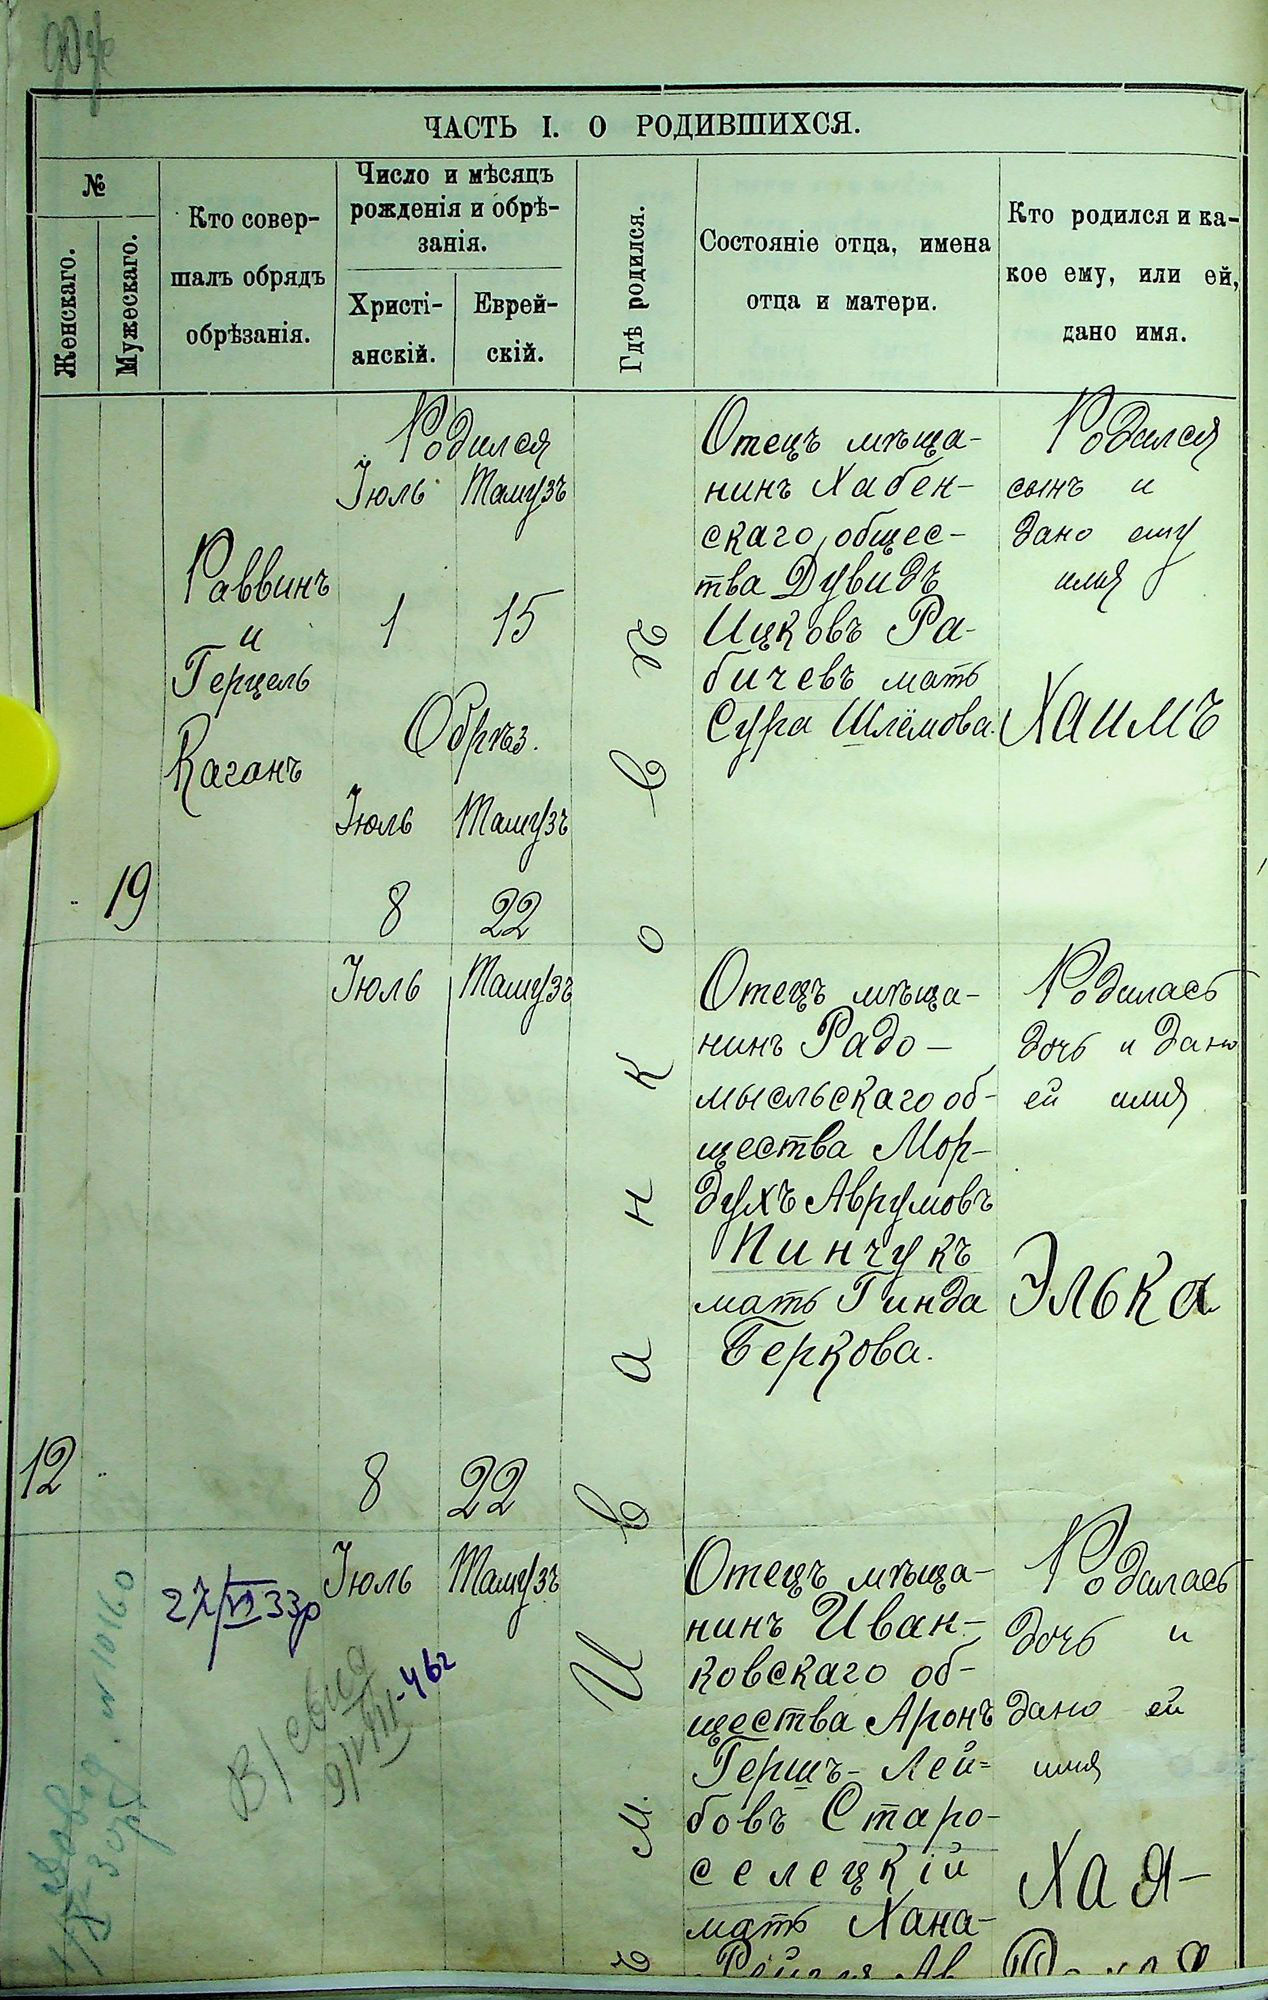 ЧАСТЬ I. О РОДИВШИХСЯ.
№
Женскаго.
Мужескаго.
Кто совер-
шалъ обрядъ
обрѣзанія.
Число и мѣсяцъ
рожденія и обрѣ-
занія.
Христі-
анскій.
Еврей-
скій.
Гдѣ родился.
Состояніе отца, имена
отца и матери.
Кто родился и ка-
кое ему, или ей,
дано имя.
19
Раввинъ
и
Герцель
Каганъ
Родился
Іюль Тамузъ
1 15
Обрѣз.
Іюль Тамузъ
8 22
Отецъ мѣща-
нинъ Хабен-
скаго общес-
тва Дувидъ
Ицковъ Ра-
бичевъ мать
Сура Шлёмова.
Родился
сынъ и
дано ему
имя
Хаимъ
12
Іюль Тамузъ
8 22
Отецъ мѣща-
нинъ Радо-
мысльскаго об-
щества Мор-
духъ Аврумовъ
Пинчукъ
мать Гинда
Беркова.
Родилась
дочь и дано
ей имя
Элька
Іюль Тамузъ
Отецъ мѣща-
нинъ Иван-
ковскаго об-
щества Аронъ
Гершъ-Лей-
бовъ Старо-
селецкій
мать Хана-
Родилась
дочь и
дано ей
имя
Хая-
м. Иванковъ